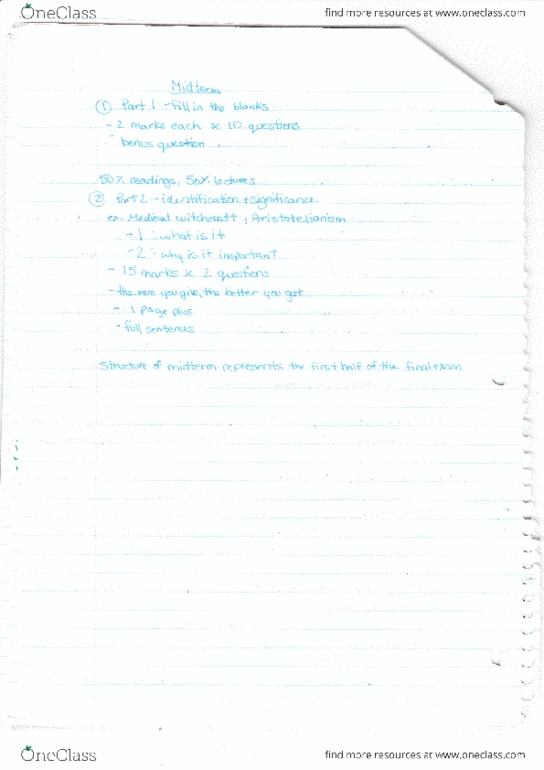 OneClass
find more resources at www.oneclass.com
Midterm
① Part 1 - Fill in the blanks
- 2 marks each x 10 questions
- bonus question
50% readings, 50% lectures
② Part 2 - identification + significance.
ex. Medieval witchcraft, Aristotelianism
- 1 : what is it
- 2 : why is it important
- 15 marks x 2 questions
- the more you give, the better you get
- 1 page plus
- full sentences
Structure of midterm represents the first half of the final exam
OneClass
find more resources at www.oneclass.com